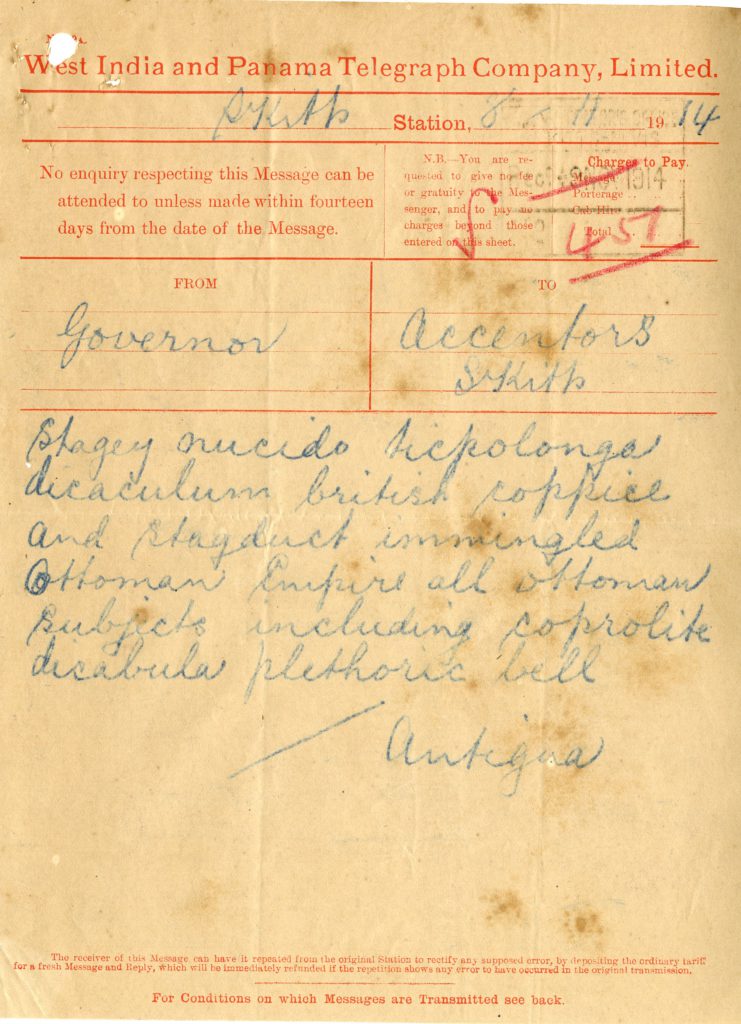 West India and Panama Telegraph Company, Limited.
St Kitts Station, 8 - 11 1914
No enquiry respecting this Message can be
attended to unless made within fourteen
days from the date of the Message.
N.B.—You are re-
quested to give no fee
or gratuity to the Mes-
senger, and to pay no
charges beyond those
entered on this sheet.
Charges to Pay.
Message
Porterage
Cab Hire
Total
4 51
1914
FROM
TO
Governor
Accentors
St Kitts
Stagey nucido ticpolonga
dicaculum british coppice
and stagduct immingled
Ottoman Empire all ottoman
subjects including coprolite
dicabula plethoric bell
Antigua
The receiver of this Message can have it repeated from the original Station to rectify any supposed error, by depositing the ordinary tariff
for a fresh Message and Reply, which will be immediately refunded if the repetition shows any error to have occurred in the original transmission.
For Conditions on which Messages are Transmitted see back.